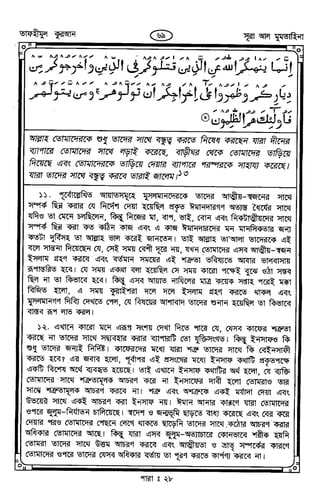 তাফহীমুল কুরআন
৬৯
সূরা আল মুমতাহিনা
إِنَّمَا يَنْهٰىكُمُ اللّٰهُ عَنِ الَّذِيْنَ قٰتَلُوْكُمْ فِى الدِّيْنِ وَاَخْرَجُوْكُمْ مِّنْ
دِيَارِكُمْ وَظٰهَرُوْا عَلٰٓى اِخْرَاجِكُمْ اَنْ تَوَلَّوْهُمْ ۚ وَمَنْ يَّتَوَلَّهُمْ
فَاُولٰٓئِكَ هُمُ الظّٰلِمُوْنَ
আল্লাহ তোমাদেরকে শুধু তাদের সাথে বন্ধুত্ব করতে নিষেধ করছেন যারা দীনের
ব্যাপারে তোমাদের সাথে লড়াই করেছে, বাড়ীঘর থেকে তোমাদের তাড়িয়ে
দিয়েছে এবং তোমাদেরকে তাড়িয়ে দেয়ার ব্যাপারে পরস্পরকে সাহায্য করেছে।
যারা তাদের সাথে বন্ধুত্ব করবে তারাই জালেম।১৩
১১. পূর্বোল্লেখিত আয়াতসমূহে মুসলমানদেরকে তাদের আত্মীয়-স্বজনের সাথে
সম্পর্ক ছিন্ন করার যে নির্দেশ দেয়া হয়েছিল প্রকৃত ঈমানদারগণ অত্যন্ত ধৈর্যের সাথে
যদিও তা মেনে চলছিলেন, কিন্তু নিজের মা, বাপ, ভাই, বোন এবং নিকটাত্মীয়দের সাথে
সম্পর্ক ছিন্ন করা কত কঠিন কাজ এবং এ কাজ ঈমানদারদের মন মানসিকতার জন্য
কতটা দুর্বিসহ তা আল্লাহ ভাল করেই জানতেন। তাই আল্লাহ তা'আলা তাদেরকে এই
বলে সান্ত্বনা দিয়েছেন যে, সেই সময় বেশী দূরে নয়, যখন তোমাদের এসব আত্মীয়-স্বজন
ইসলাম গ্রহণ করবে এবং বর্তমান সময়ের এই শত্রুতা ভবিষ্যতে আবার ভালবাসায়
রূপান্তরিত হবে। যে সময় একথা বলা হয়েছিল সে সময় কারো পক্ষেই বুঝে ওঠা সম্ভব
ছিল না তা কিভাবে হবে। কিন্তু এসব আয়াত নাযিলের মাত্র কয়েক সপ্তাহ পরেই মক্কা
বিজিত হলো, এ সময় কুরাইশরা দলে দলে ইসলাম গ্রহণ করতে থাকল এবং
মুসলমানগণ দিব্যি দেখতে পেল, যে বিষয়ের আশাবাদ তাদের শুনান হয়েছিল তা কিভাবে
বাস্তব রূপ লাভ করল।
১২. এখানে কারো মনে এরূপ সংশয় দেখা দিতে পারে যে, যেসব কাফের শত্রুতা
করছে না তাদের সাথে সদ্ব্যবহার করার ব্যাপারটি তো যুক্তিসংগত। কিন্তু ইনসাফও কি
শুধু তাদের জন্যই নির্দিষ্ট। কাফেরদের মধ্যে যারা শত্রু তাদের সাথে কি বেইনসাফী
করতে হবে? এর জবাব হলো, পূর্বাপর এই প্রসংগের মধ্যে ইনসাফ কথাটি প্রকৃতপক্ষে
একটি বিশেষ অর্থে ব্যবহৃত হয়েছে। তাই এখানে ইনসাফ কথাটির অর্থ হলো, যে ব্যক্তি
তোমাদের সাথে শত্রুতামূলক আচরণ করে না ইনসাফের দাবী হলো তোমরাও তার
সাথে শত্রুতামূলক আচরণ করবে না। শত্রু এবং অশত্রুকে একই মর্যাদা দেয়া এবং
উভয়ের সাথে একই আচরণ করা ইনসাফ নয়। ঈমান আনার কারণে যারা তোমাদের
ওপরে জুলুম-নির্যাতন চালিয়েছে। স্বদেশ ও জন্মভূমি ছাড়তে বাধ্য করেছে এবং বের করে
দেয়ার পরও তোমাদের পেছনে লেগে থাকতে ছাড়েনি তাদের সাথে কঠোর আচরণ করার
অধিকার তোমাদের আছে। কিন্তু যারা এসব জুলুম-অত্যাচারে কোনভাবে শরীক হয়নি
তোমরা তাদের সাথে উত্তম আচরণ করবে এবং আত্মীয়তা ও ভ্রাতৃ সম্পর্কের কারণে
তোমাদের ওপরে তাদের যেসব অধিকার বর্তায় তা পূরণ করতে কার্পণ্য করবে না।
পারা : ২৮